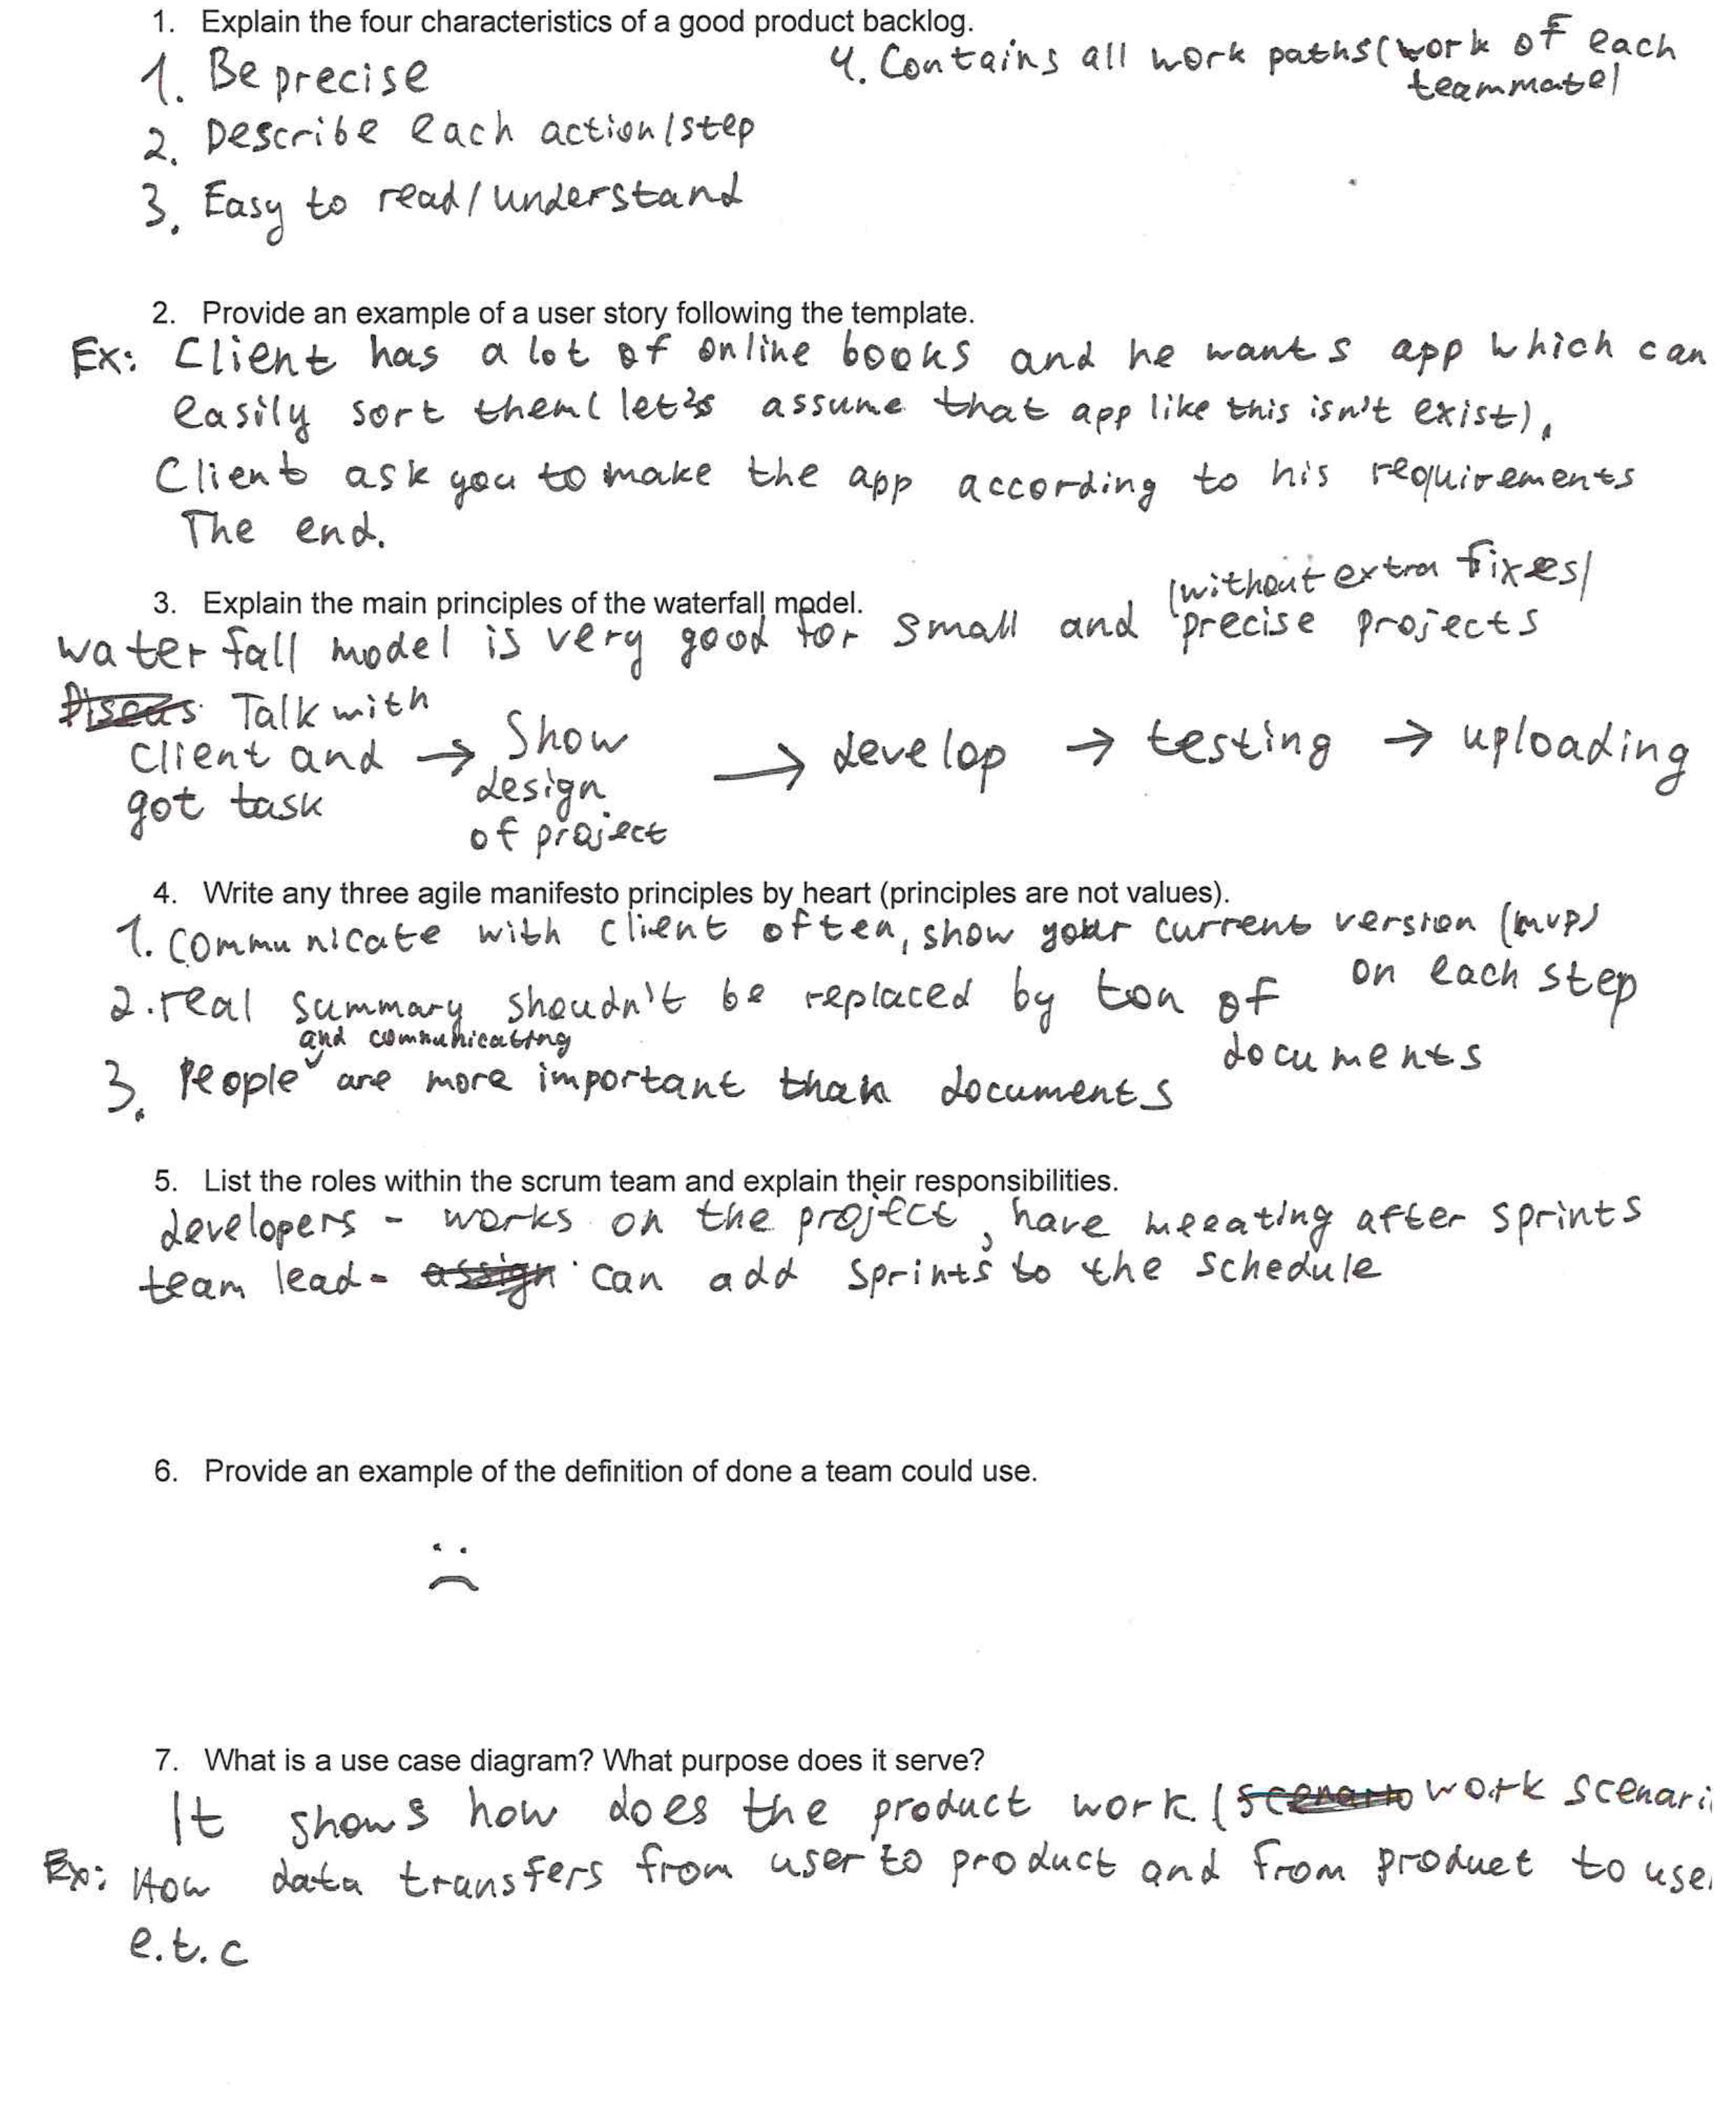 1. Explain the four characteristics of a good product backlog.
1. Be precise
2. Describe each action/step
3. Easy to read/understand
4. Contains all work paths (work of each
teammate)
2. Provide an example of a user story following the template.
Ex: Client has a lot of online books and he wants app which can
easily sort them (let's assume that app like this isn't exist),
Client ask you to make the app according to his requirements
The end.
3. Explain the main principles of the waterfall model.
(without extra fixes)
waterfall model is very good for small and precise projects
Talk with
client and → Show → develop → testing → uploading
got task design
of project
4. Write any three agile manifesto principles by heart (principles are not values).
1. communicate with client often, show your current version (mvp)
on each step
2. real summary shoudn't be replaced by ton of
documents
and communicating
3. People are more important than documents
5. List the roles within the scrum team and explain their responsibilities.
developers - works on the project, have meeating after sprints
team lead - can add sprints to the schedule
6. Provide an example of the definition of done a team could use.
7. What is a use case diagram? What purpose does it serve?
It shows how does the product work. (work scenari
Ex: How data transfers from user to product and from product to use
e.t.c